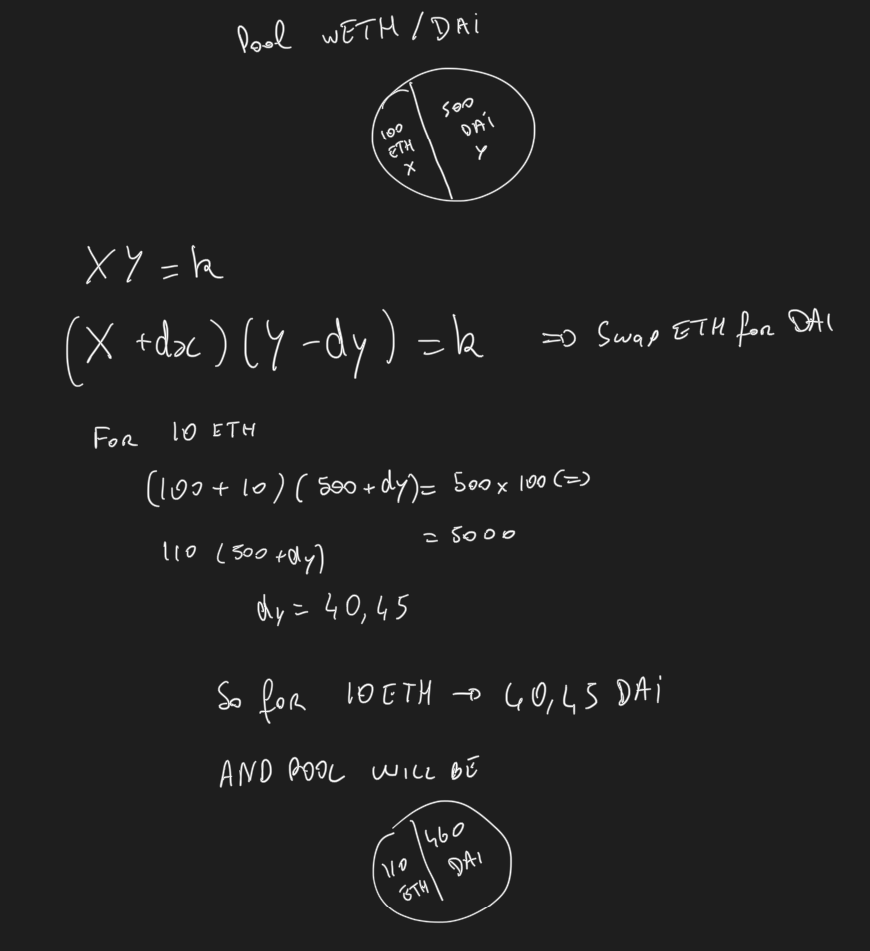 Pool wETH / DAi
100
ETH
X
500
DAi
Y
XY = k
(X + dx) (Y - dy) = k => Swap ETH for DAI
FOR 10 ETH
(100 + 10) ( 500 + dy) = 500 x 100 (=>
110 (500 + dy) = 5000
dy = 40,45
So for 10 ETH → 40,45 DAi
AND POOL WILL BE
110
ETH
460
DAI